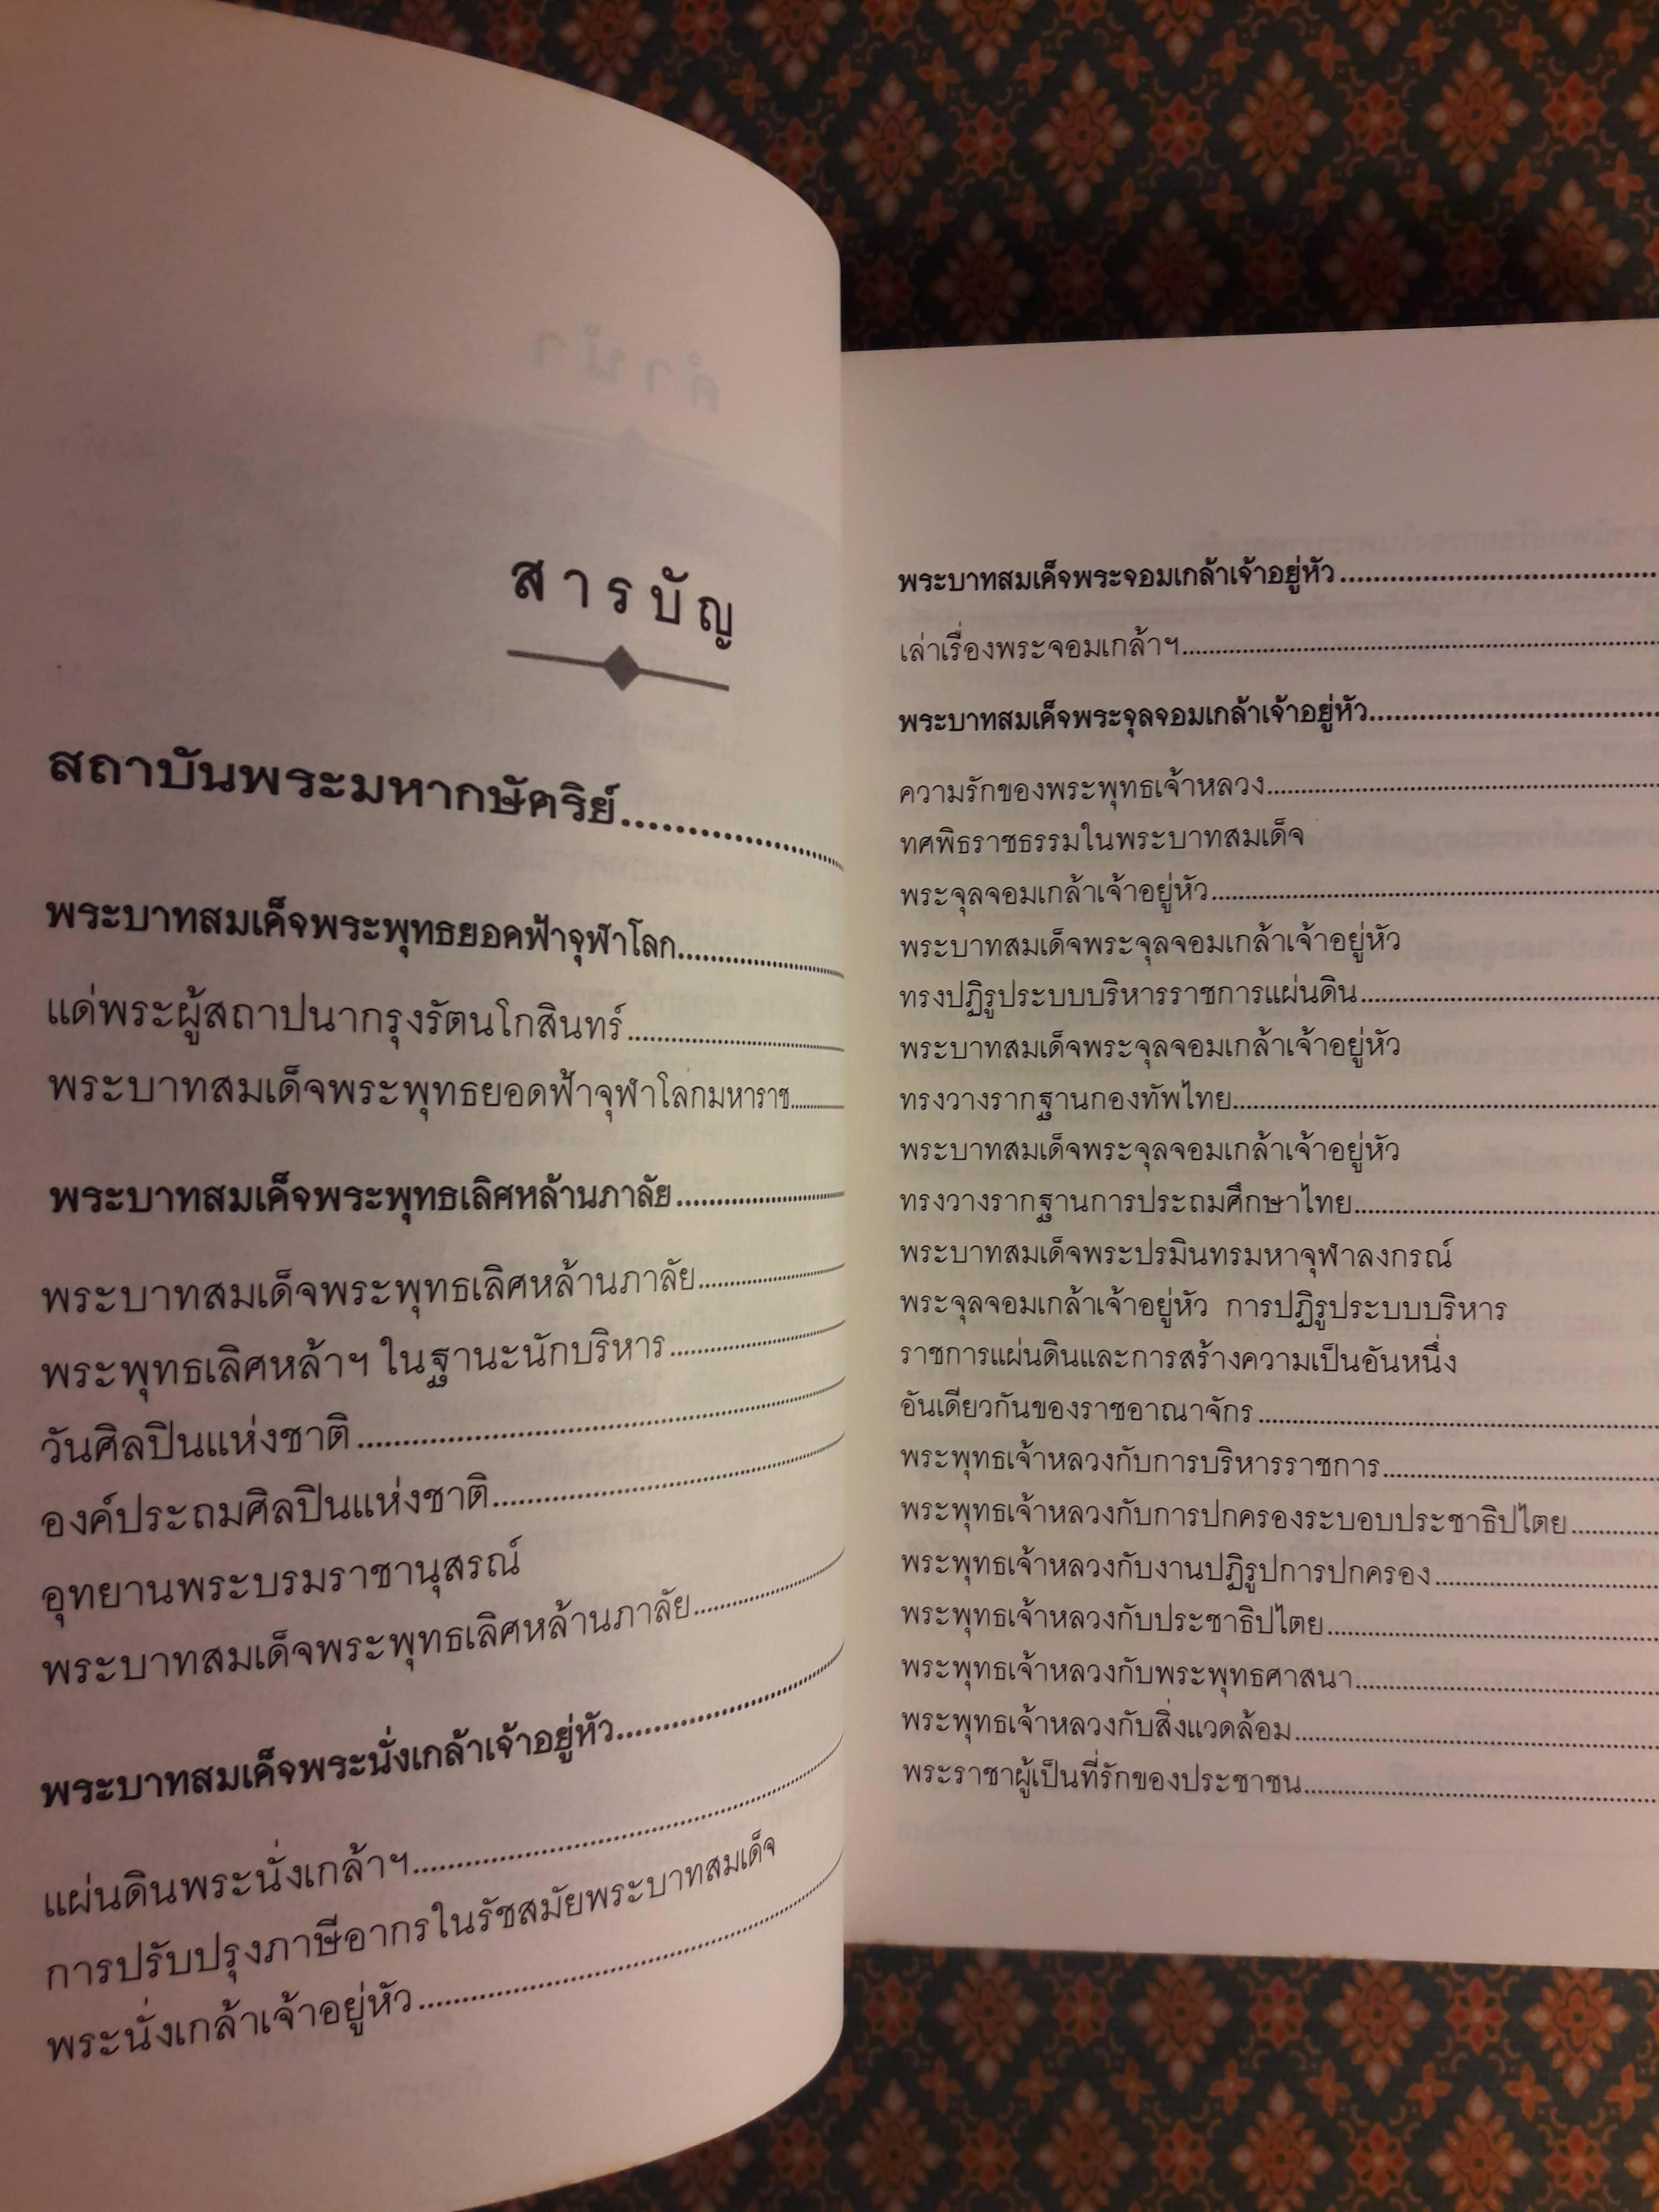 สารบัญ
สถาบันพระมหากษัตริย์
พระบาทสมเด็จพระพุทธยอดฟ้าจุฬาโลก
แด่พระผู้สถาปนากรุงรัตนโกสินทร์
พระบาทสมเด็จพระพุทธยอดฟ้าจุฬาโลกมหาราช
พระบาทสมเด็จพระพุทธเลิศหล้านภาลัย
พระบาทสมเด็จพระพุทธเลิศหล้านภาลัย
พระพุทธเลิศหล้าฯ ในฐานะนักบริหาร
วันศิลปินแห่งชาติ
องค์ประถมศิลปินแห่งชาติ
อุทยานพระบรมราชานุสรณ์
พระบาทสมเด็จพระพุทธเลิศหล้านภาลัย
พระบาทสมเด็จพระนั่งเกล้าเจ้าอยู่หัว
แผ่นดินพระนั่งเกล้าฯ
การปรับปรุงภาษีอากรในรัชสมัยพระบาทสมเด็จ
พระนั่งเกล้าเจ้าอยู่หัว
พระบาทสมเด็จพระจอมเกล้าเจ้าอยู่หัว
เล่าเรื่องพระจอมเกล้าฯ
พระบาทสมเด็จพระจุลจอมเกล้าเจ้าอยู่หัว
ความรักของพระพุทธเจ้าหลวง
ทศพิธราชธรรมในพระบาทสมเด็จ
พระจุลจอมเกล้าเจ้าอยู่หัว
พระบาทสมเด็จพระจุลจอมเกล้าเจ้าอยู่หัว
ทรงปฏิรูประบบบริหารราชการแผ่นดิน
พระบาทสมเด็จพระจุลจอมเกล้าเจ้าอยู่หัว
ทรงวางรากฐานกองทัพไทย
พระบาทสมเด็จพระจุลจอมเกล้าเจ้าอยู่หัว
ทรงวางรากฐานการประถมศึกษาไทย
พระบาทสมเด็จพระปรมินทรมหาจุฬาลงกรณ์
พระจุลจอมเกล้าเจ้าอยู่หัว การปฏิรูประบบบริหาร
ราชการแผ่นดินและการสร้างความเป็นอันหนึ่ง
อันเดียวกันของราชอาณาจักร
พระพุทธเจ้าหลวงกับการบริหารราชการ
พระพุทธเจ้าหลวงกับการปกครองระบอบประชาธิปไตย
พระพุทธเจ้าหลวงกับงานปฏิรูปการปกครอง
พระพุทธเจ้าหลวงกับประชาธิปไตย
พระพุทธเจ้าหลวงกับพระพุทธศาสนา
พระพุทธเจ้าหลวงกับสิ่งแวดล้อม
พระราชาผู้เป็นที่รักของประชาชน